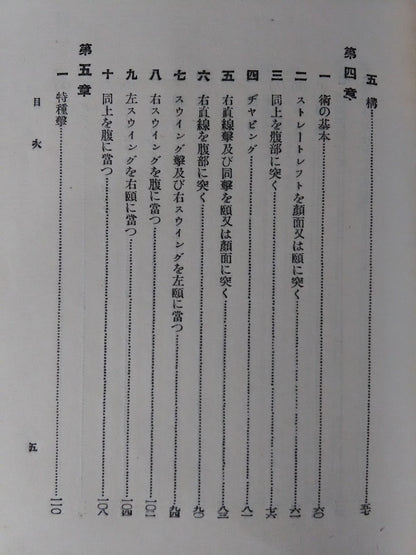 五 構………五七
第四章
一 術の基本………六〇
二 ストレートレフトを顔面又は頤に突く………六一
三 同上を腹部に突く………七六
四 ヂャビング………八一
五 右直線擊及び同擊を頤又は顔面に突く………八三
六 右直線を腹部に突く………九〇
七 スウイング擊及び右スウイングを左頤に當つ………九四
八 右スウイングを腹に當つ………一〇一
九 左スウイングを右頤に當つ………一〇四
十 同上を腹に當つ………一〇八
第五章
一 特種擊………一一〇
目次
五